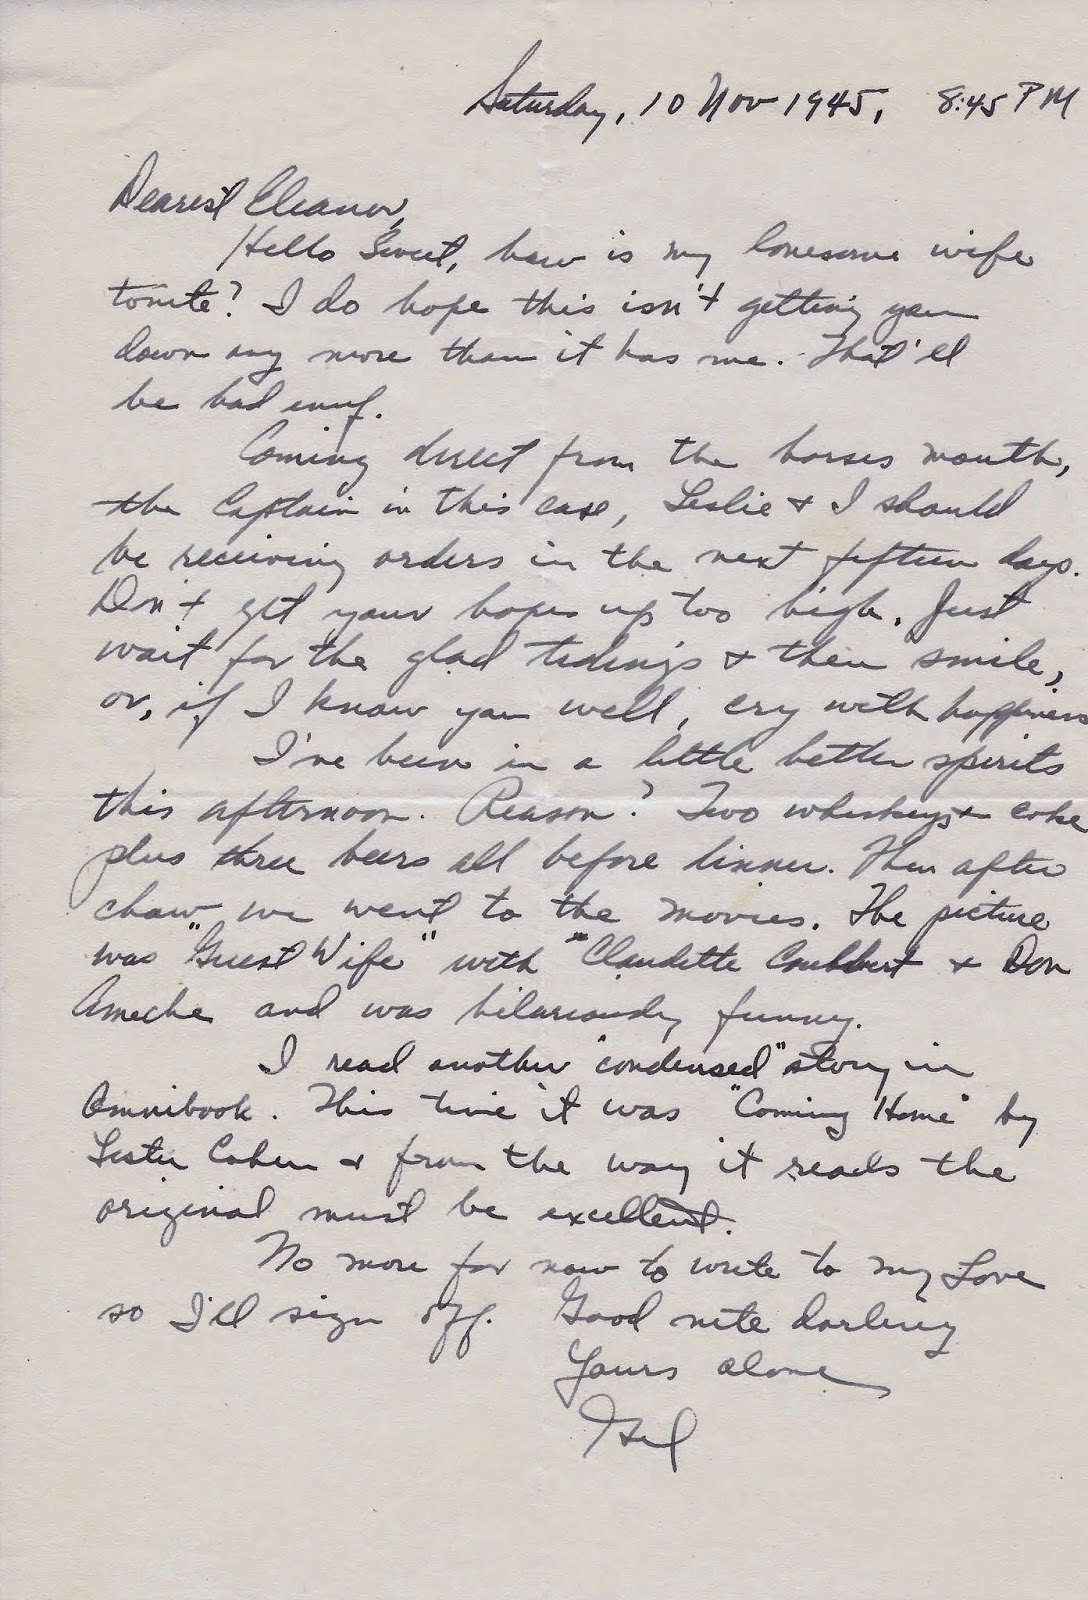 Saturday, 10 Nov 1945, 8:45 PM
Dearest Eleanor,
Hello Sweet, how is my lonesome wife
tonite? I do hope this isn't getting you
down any more than it has me. That'll
be bad enuf.
Coming direct from the horses mouth,
the Captain in this case, Leslie & I should
be receiving orders in the next fifteen days.
Don't get your hopes up too high. Just
wait for the glad tidings & then smile,
or, if I know you well, cry with happiness
I've been in a little better spirits
this afternoon. Reason? Two whiskeys & coke
plus three beers all before dinner. Then after
chow we went to the movies. The picture
was "Guest Wife" with "Claudette & Don
Ameche and was hilariously funny.
I read another "condensed" story in
Omnibook. This time it was "Coming Home" by
Lester Cohen & from the way it reads the
original must be excellent.
No more for now to write to my Love
so I'll sign off. Good nite darling
Yours alone